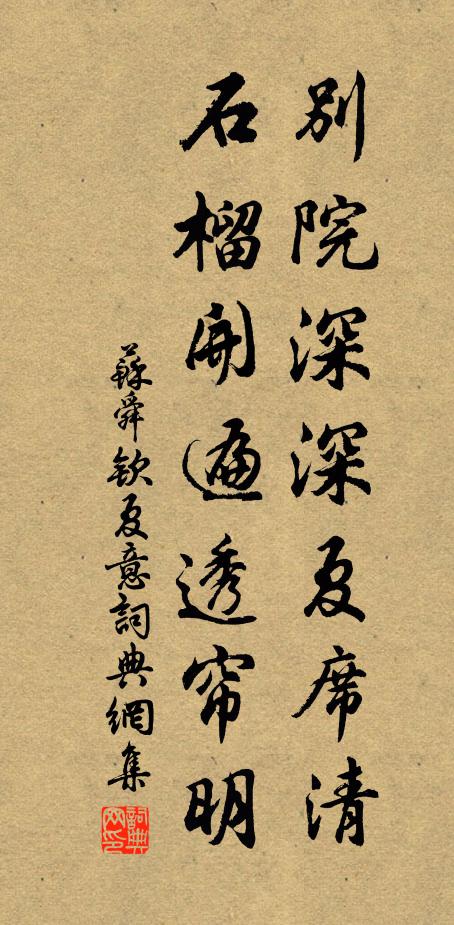 別院深深夏席清
石榴開遍透帘明
蘇舜欽夏意詞典網集
詞典网印